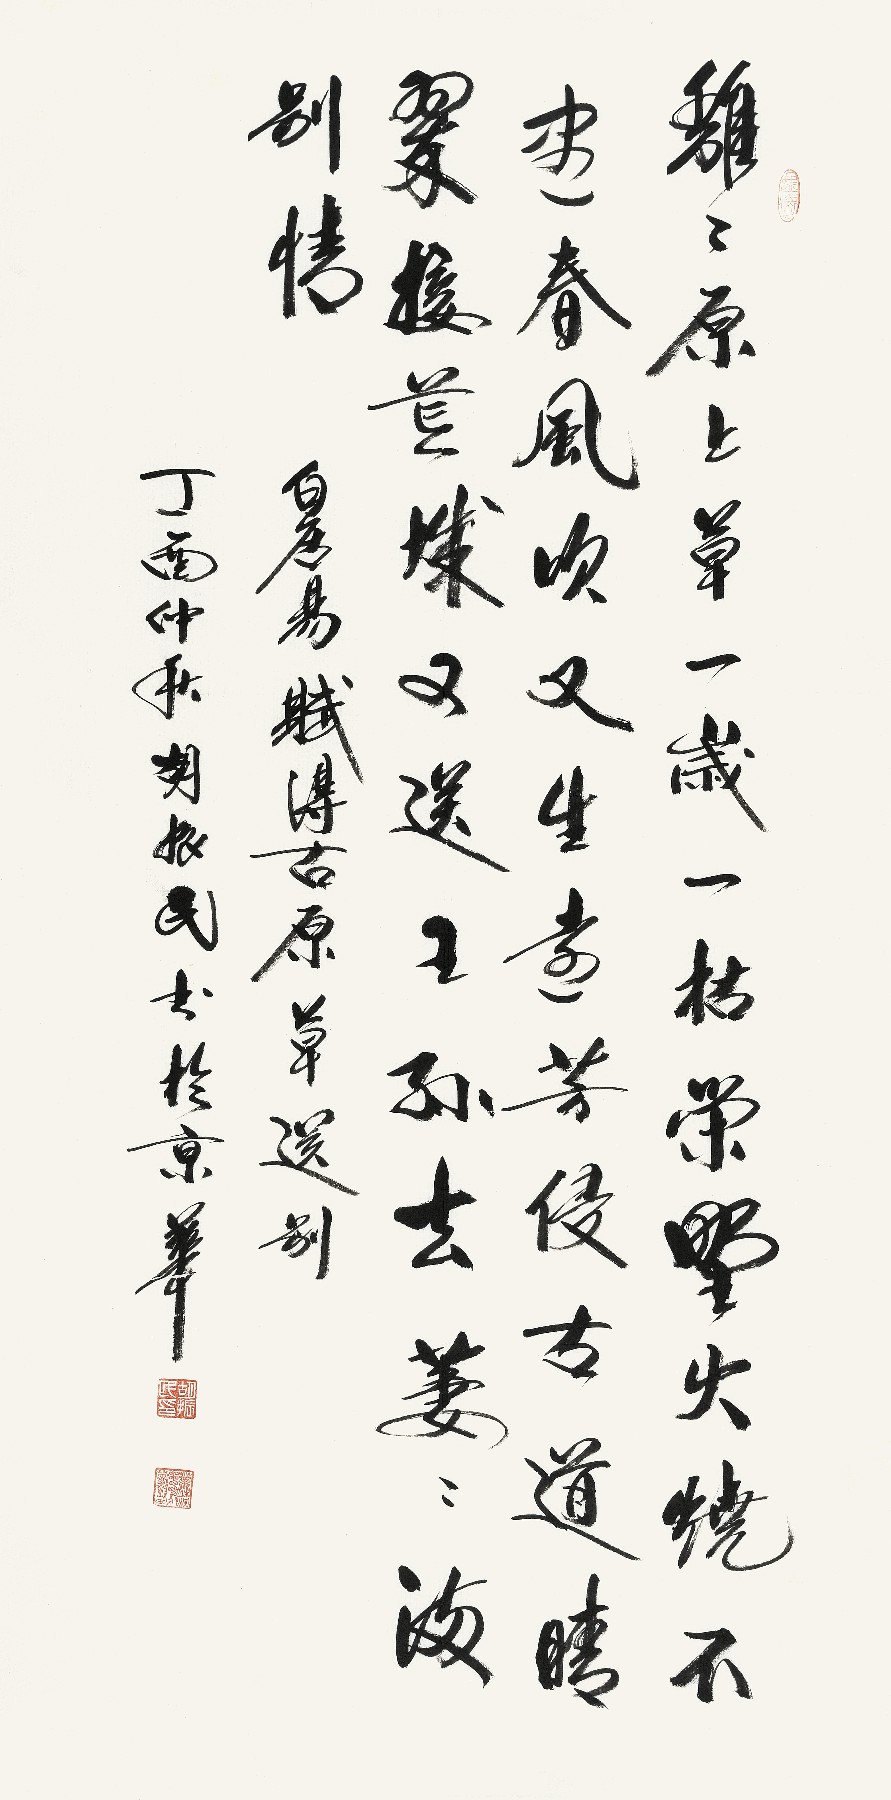 離〻原上草一歲一枯榮野火燒不
盡春風吹又生遠芳侵古道晴
翠接荒城又送王孫去萋〻滿
別情
白居易賦得古原草送別
丁酉仲秋胡振民书於京華
胡振民印